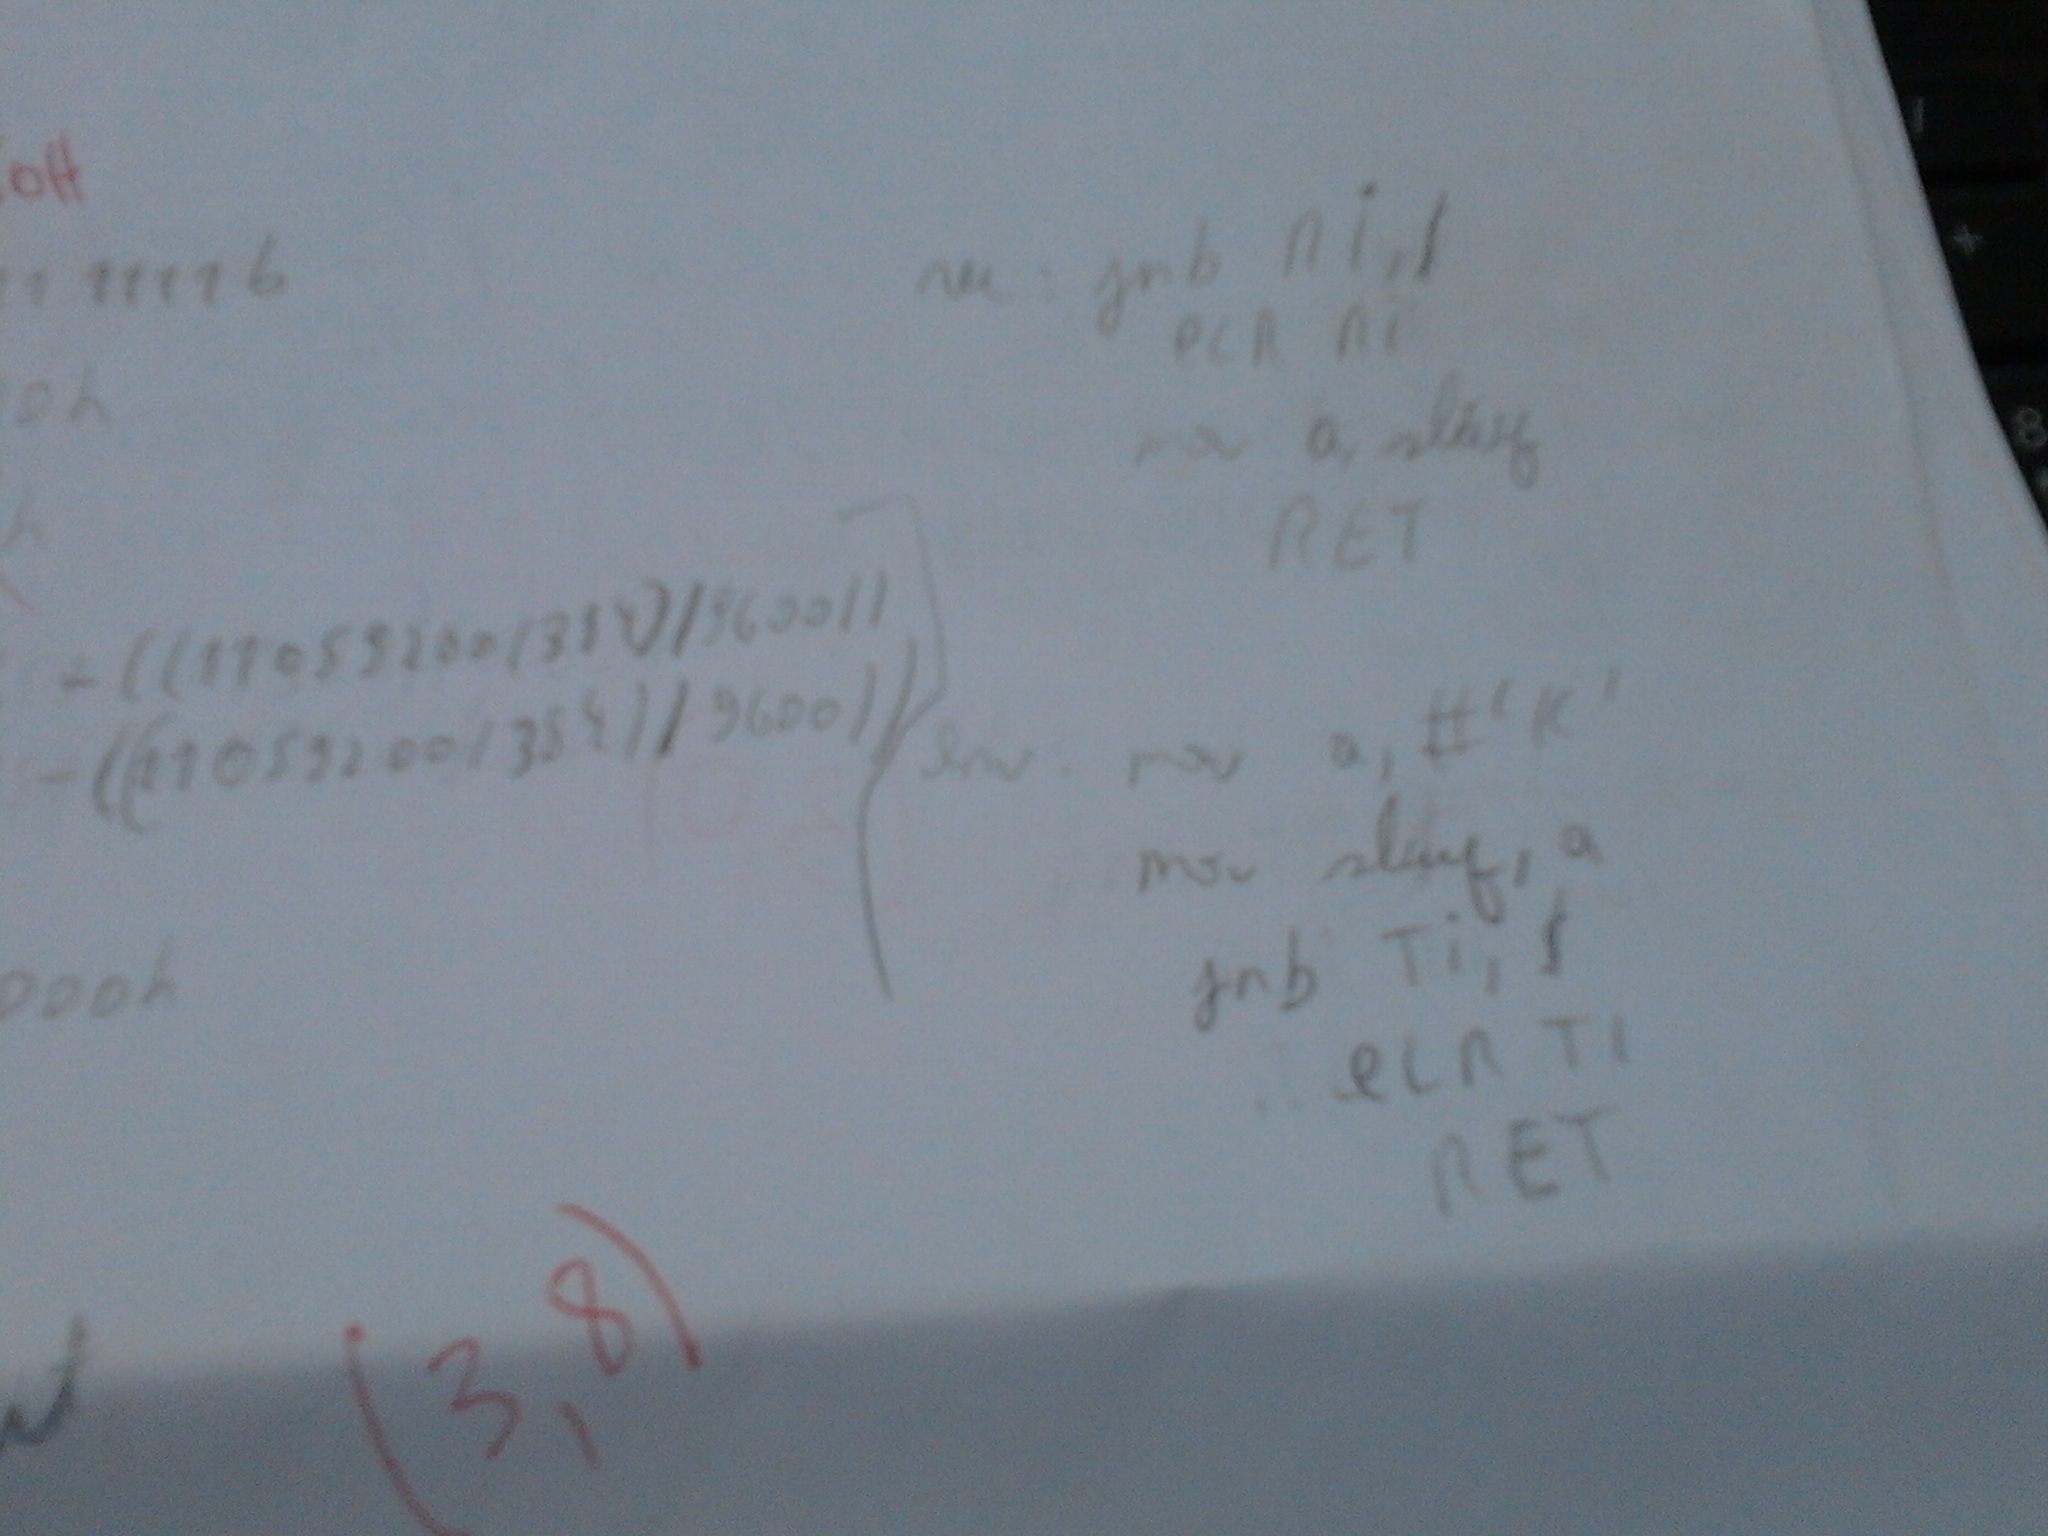 0H
11 11111b
00h
h
-((11059200/384)/9600))
-((11059200/384)/9600))
000h
rec: jnb Ri,$
CLR Ri
mov a, sbuf
RET
env: mov a, #'K'
mov sbuf, a
jnb Ti, $
CLR TI
RET
(3,8)